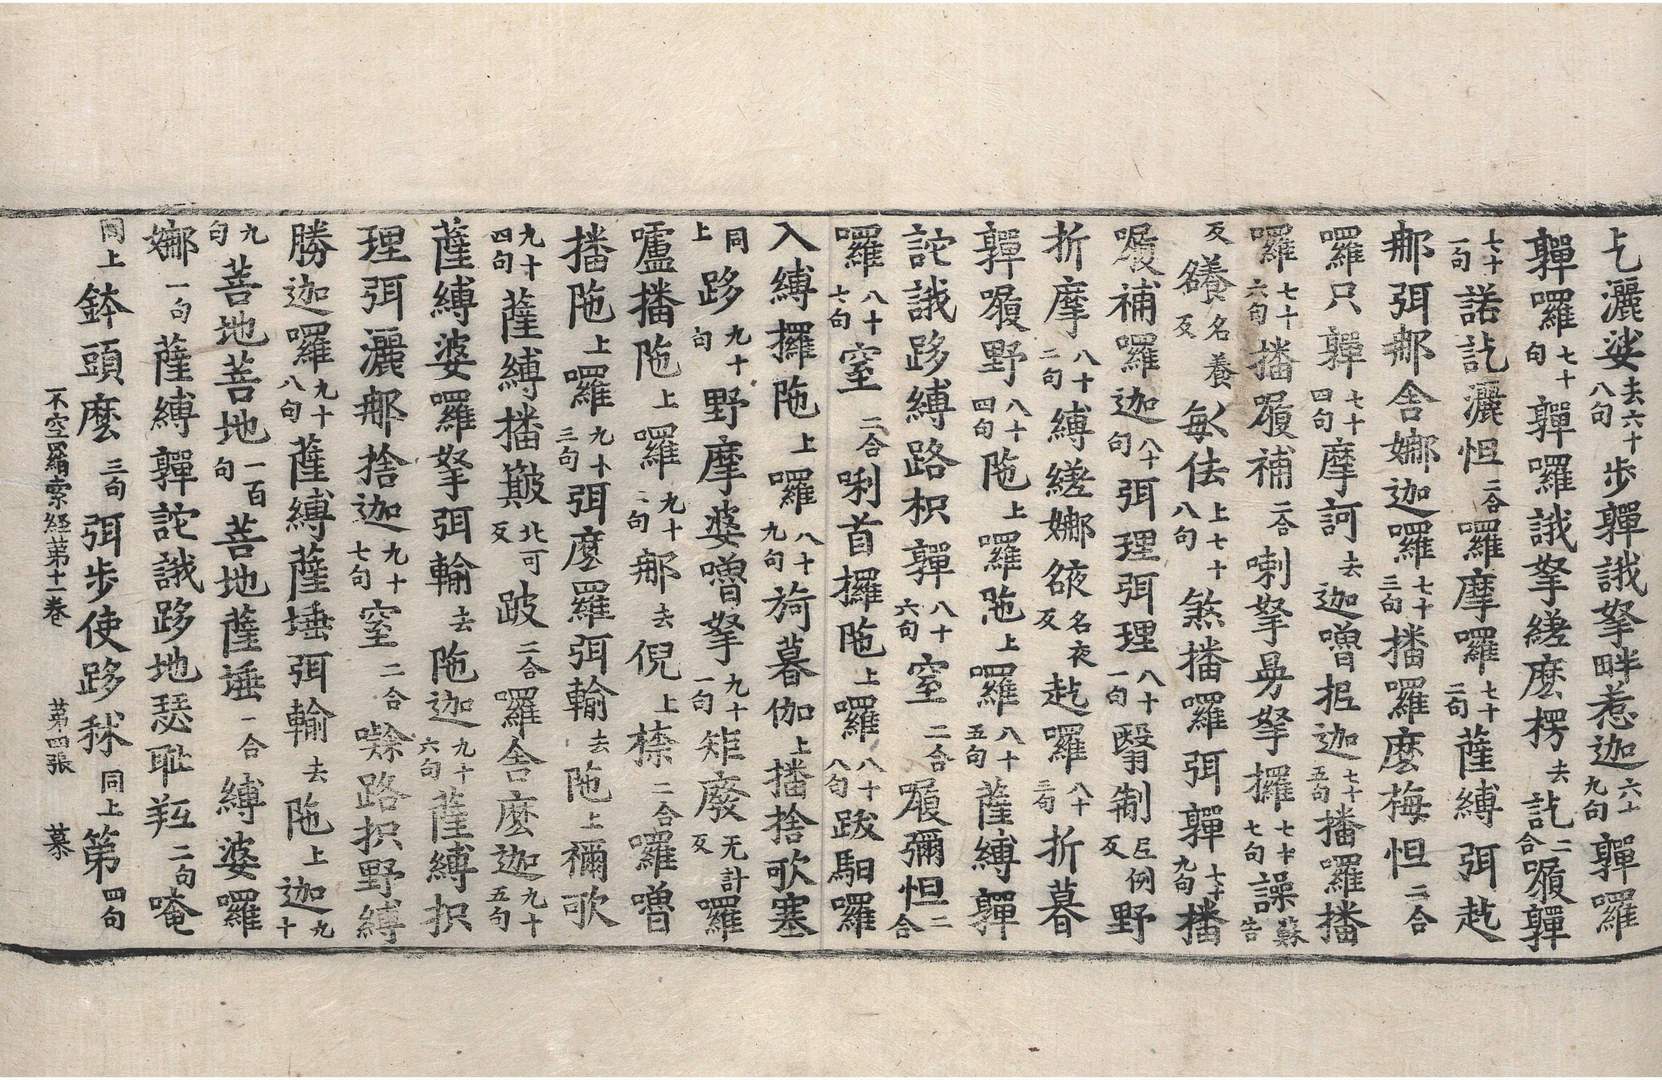 乞灑娑去六十八句步嚲誐拏畔惹迦六十九句嚲囉
嚲囉七十句嚲囉誐拏縒麽楞去訖二合履嚲
七十一句諾訖灑怛二合囉摩囉七十二句薩縛弭訖
那弭那舍娜迦囉七十三句播囉麽梅怛二合
囉只嚲七十四句摩訶去迦嚕抳迦七十五句播囉播
囉七十六句播履補二合喇拏拏攞七十七句譟蘇告
反名養反每佉上七十八句煞播囉弭嚲七十九句播
履補囉迦八十句弭理弭理八十一句翳制尼例反野
折摩八十二句縛縒娜名夜反訖囉八十三句折暮
嚲履野八十四句陁上囉陁上囉八十五句薩縛嚲
詑誐跢縛路枳嚲八十六句窒二合履彌怛二合
囉八十七句窒二合唎首攞陁上囉八十八句跋馹囉
入縛攞陁上囉八十九句旖暮伽上播捨歌塞
同上跢九十句野摩婆嚕拏九十一句矩廢无計反囉
嚧播陁上囉九十二句那去倪上㮈二合囉嚕
播陁上囉九十三句弭麽羅弭輸去陁上禰歌
九十四句薩縛播簸北可反跛二合囉舍麽迦九十五句
薩縛婆囉拏弭輸去陁迦九十六句薩縛抧
理弭灑那捨迦九十七句窒二合㗚路抧野縛
勝迦囉九十八句薩縛薩埵弭輸去陁上迦九十
九句菩地菩地一百句菩地薩埵二合縛婆囉
娜一句薩縛嚲詑誐跢地瑟恥羝二句唵
同上鉢頭麽三句弭步使跢秫同上第四句
不空羂索経第十一巻 第四張 慕